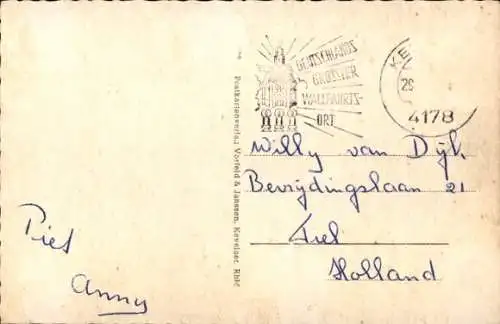 DEUTSCHLANDS
GRÖSSTER
WALLFAHRTS-
ORT
KEV
29
4178
Postkartenverlag Vorfeld & Janssen, Kevelaer, Rhld.
Willy van Dijk
Bevrijdingslaan 21
Tiel
Holland
Piet
Anny